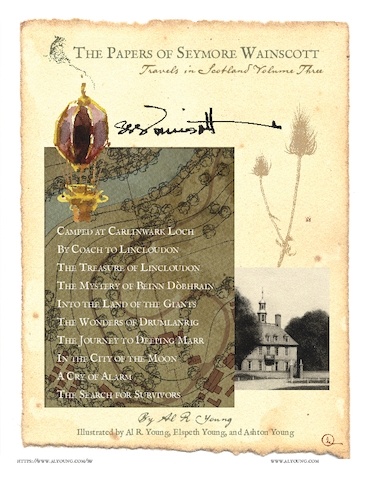 THE PAPERS OF SEYMORE WAINSCOTT
Travels in Scotland Volume Three
CAMPED AT CARLINWARK LOCH
BY COACH TO LINCLOUDON
THE TREASURE OF LINCLOUDON
THE MYSTERY OF BEINN DÒBHRAIN
INTO THE LAND OF THE GIANTS
THE WONDERS OF DRUMLANRIG
THE JOURNEY TO DEEPING MARR
IN THE CITY OF THE MOON
A CRY OF ALARM
THE SEARCH FOR SURVIVORS
By Al R. Young
Illustrated by Al R. Young, Elspeth Young, and Ashton Young
WWW.ALYOUNG.COM